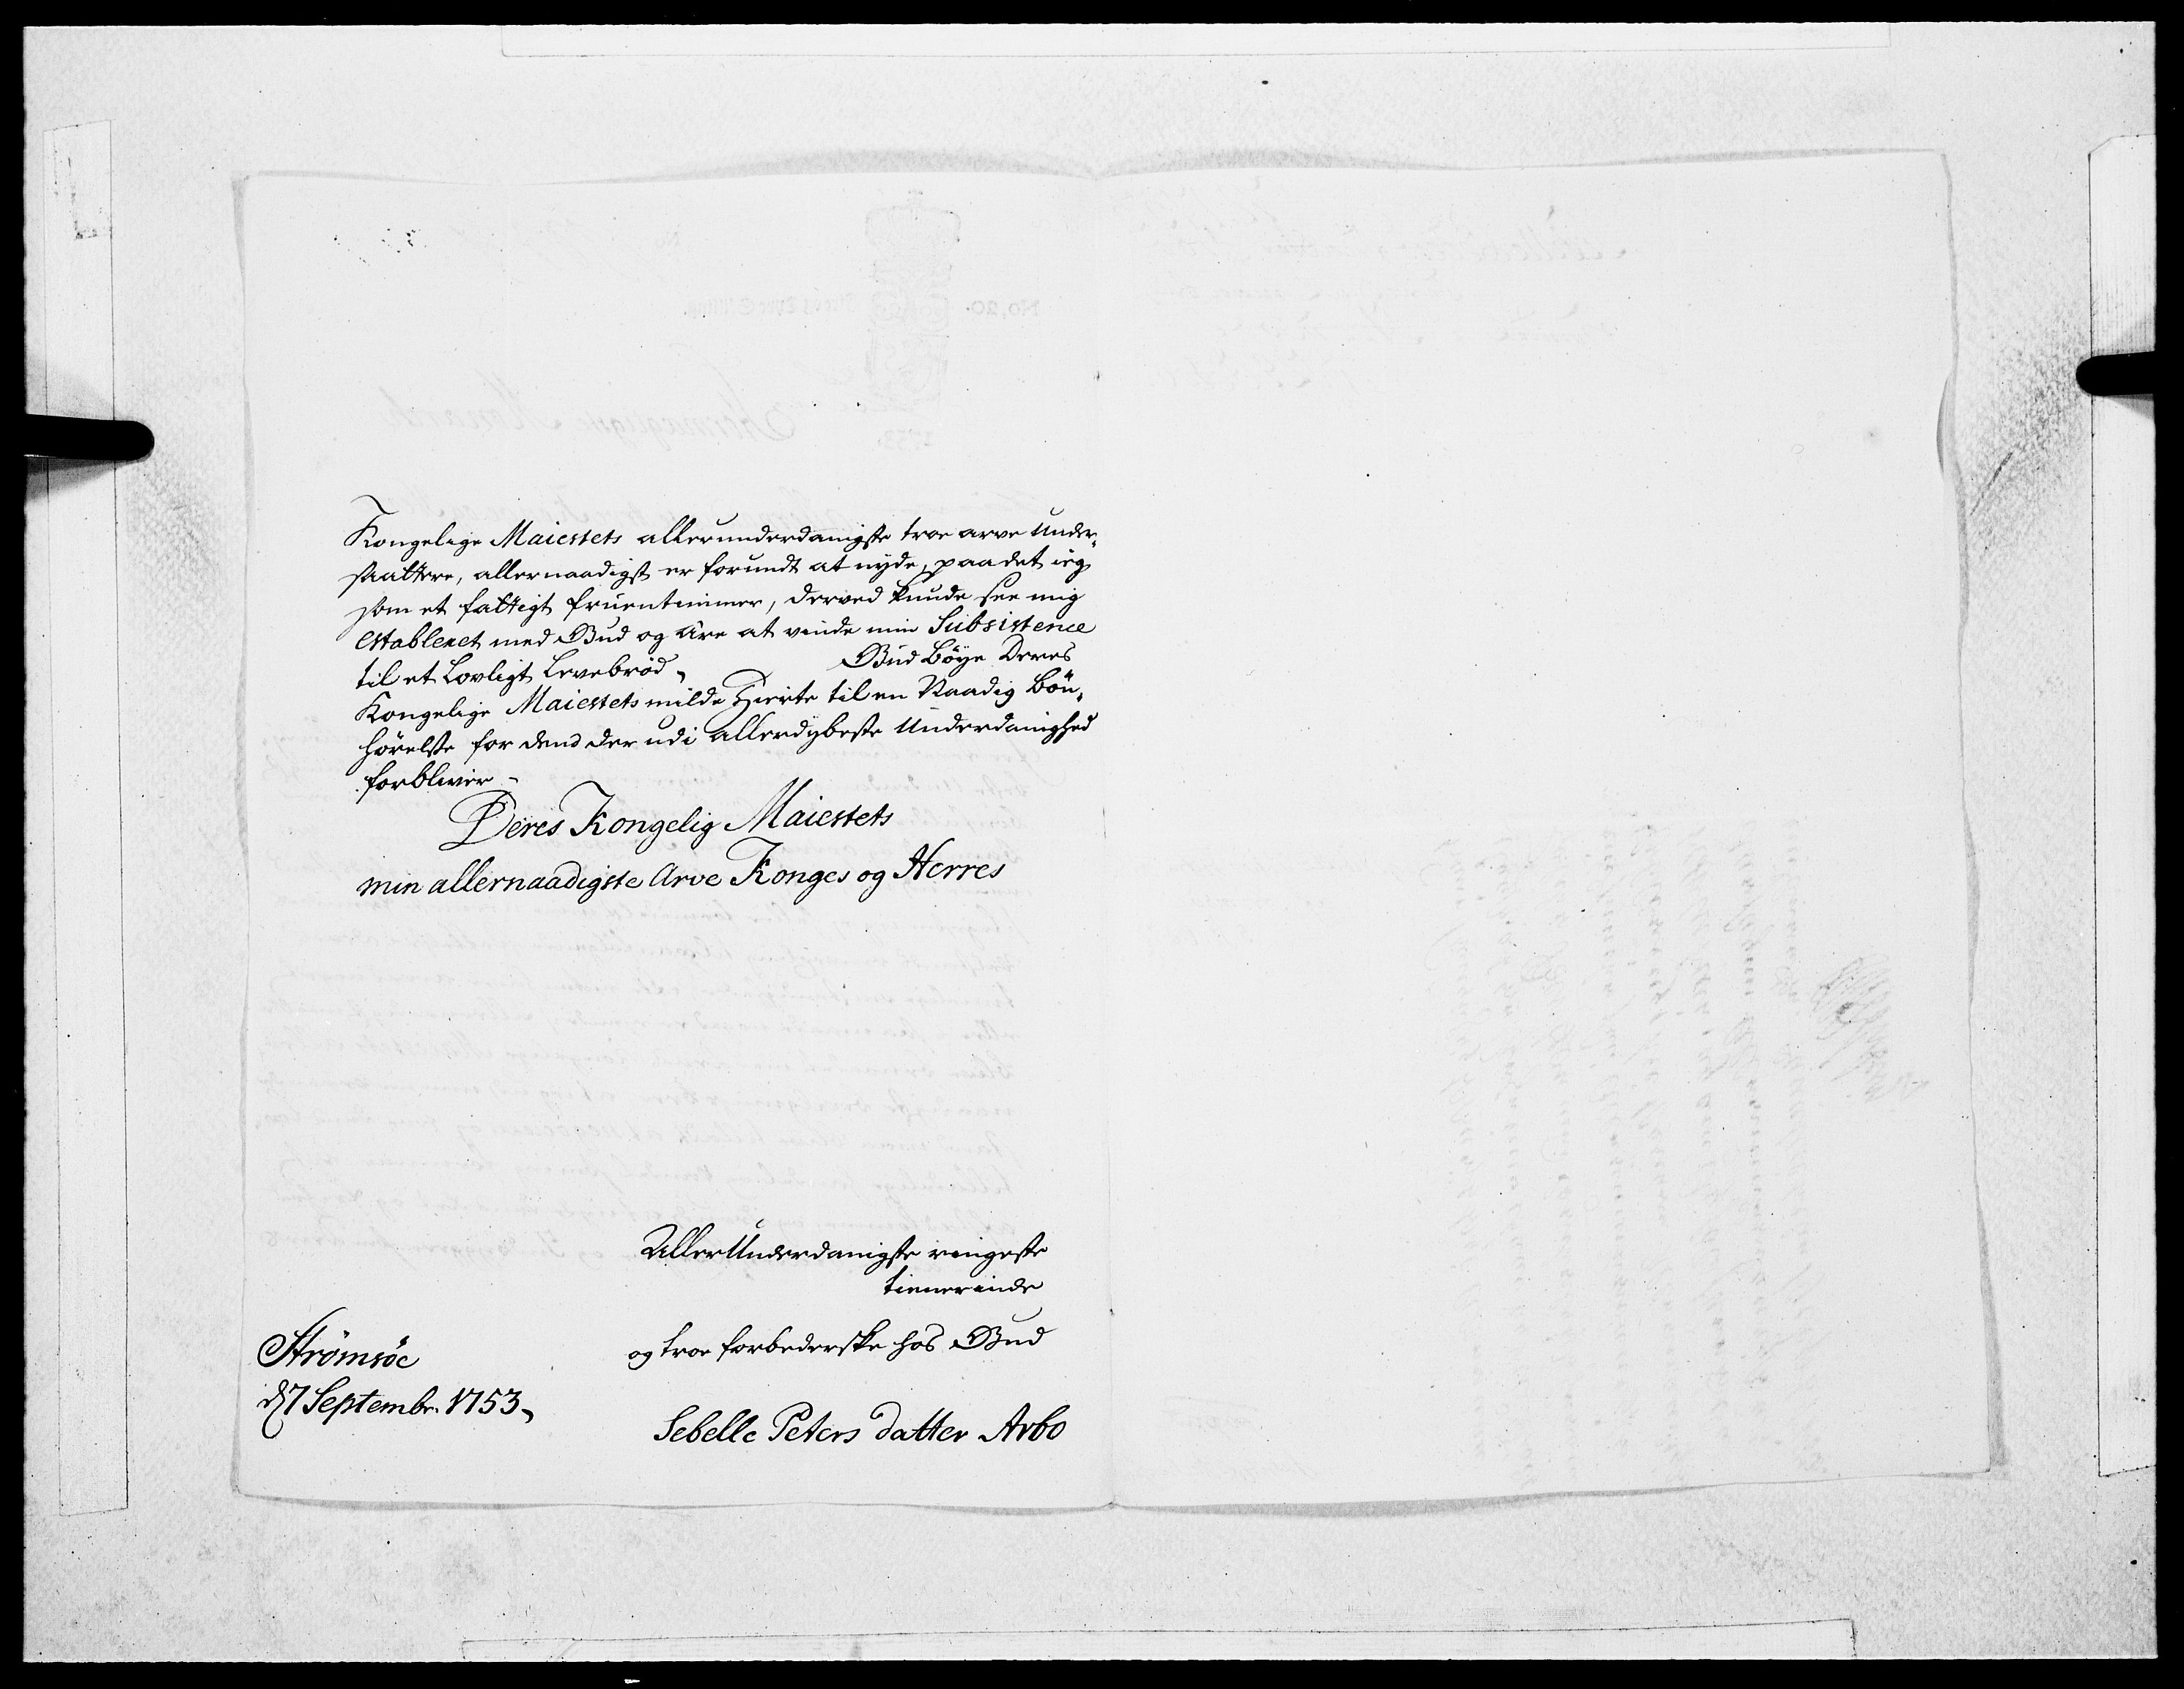 Kongelige Maiestets allerunderdanigste troe arve Under„
saattere, allernaadigst er forundt at nyde, paadet ieg
som et fattigt fruentimmer, derved kunde see mig
etableret med Gud og ære at vinde min Subsistence
til et Lovligt Levebrød,
Gud bøye Deres
Kongelige Maiestets milde Hierte til en Naadig bøn„
hørelse for dend der udi allerdybeste Underdanighed
forbliver
Deres Kongelig Maiestets
min allernaadigste Arve Konges og Herres
Aller Underdanigste ringeste
tienerinde
og troe forbederske hos Gud
Strømsöe
d 7 Septembr. 1753,
Sebelle Peters datter Arbo